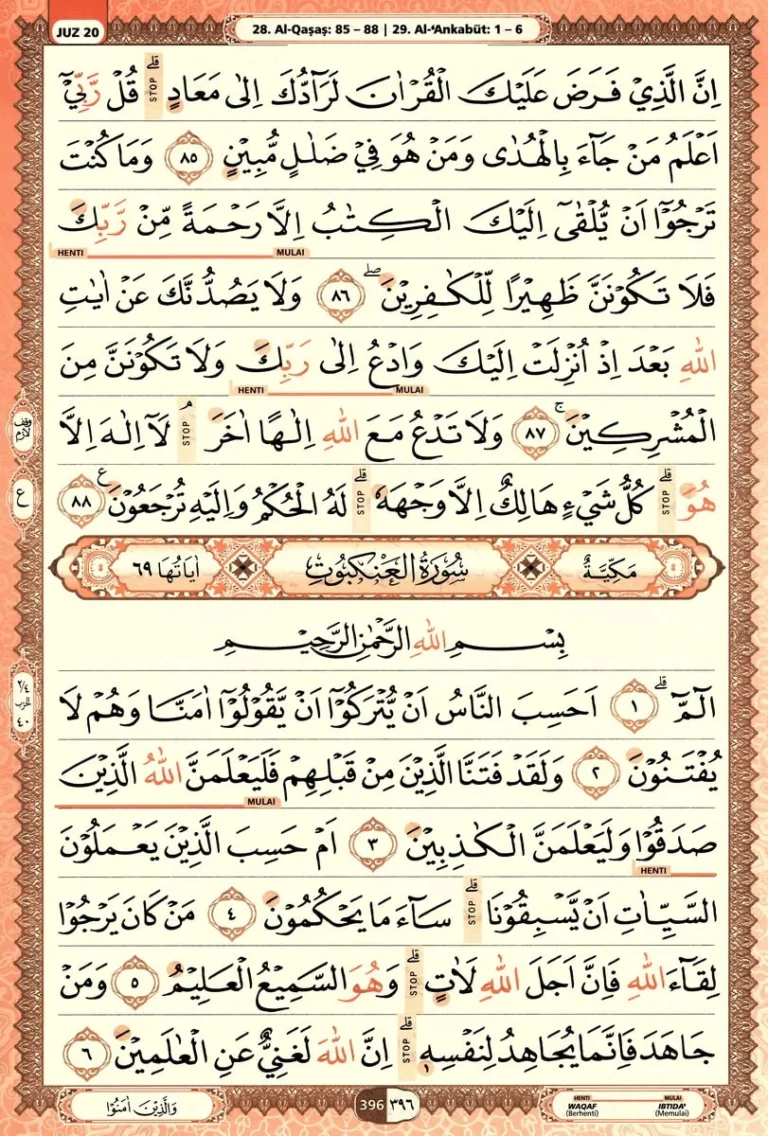 JUZ 20
28. Al-Qaṣaṣ: 85 – 88 | 29. Al-‘Ankabūt: 1 – 6
اِنَّ الَّذِيْ فَرَضَ عَلَيْكَ الْقُرْاٰنَ لَرَاۤدُّكَ اِلٰى مَعَادٍ ۗ STOP قُلْ رَّبِّيْٓ
اَعْلَمُ مَنْ جَاۤءَ بِالْهُدٰى وَمَنْ هُوَ فِيْ ضَلٰلٍ مُّبِيْنٍ ٨٥ وَمَا كُنْتَ
تَرْجُوْٓا اَنْ يُّلْقٰٓى اِلَيْكَ الْكِتٰبُ اِلَّا رَحْمَةً مِّنْ رَّبِّكَ
HENTI MULAI
فَلَا تَكُوْنَنَّ ظَهِيْرًا لِّلْكٰفِرِيْنَ ۖ ٨٦ وَلَا يَصُدُّنَّكَ عَنْ اٰيٰتِ
اللّٰهِ بَعْدَ اِذْ اُنْزِلَتْ اِلَيْكَ وَادْعُ اِلٰى رَبِّكَ وَلَا تَكُوْنَنَّ مِنَ
HENTI MULAI
الْمُشْرِكِيْنَ ۚ ٨٧ وَلَا تَدْعُ مَعَ اللّٰهِ اِلٰهًا اٰخَرَ ۘ STOP لَآ اِلٰهَ اِلَّا
هُوَ ۗ STOP كُلُّ شَيْءٍ هَالِكٌ اِلَّا وَجْهَهٗ ۗ STOP لَهُ الْحُكْمُ وَاِلَيْهِ تُرْجَعُوْنَ ࣖ ٨٨
وقف لازم
ع
مَكِّيَّةٌ سُوْرَةُ الْعَنْكَبُوْتِ اٰيَاتُهَا ٦٩
بِسْمِ اللّٰهِ الرَّحْمٰنِ الرَّحِيْمِ
٢/٤ الحزب ٤٠
الۤمّۤ ۗ ١ اَحَسِبَ النَّاسُ اَنْ يُّتْرَكُوْٓا اَنْ يَّقُوْلُوْٓا اٰمَنَّا وَهُمْ لَا
يُفْتَنُوْنَ ٢ وَلَقَدْ فَتَنَّا الَّذِيْنَ مِنْ قَبْلِهِمْ فَلَيَعْلَمَنَّ اللّٰهُ الَّذِيْنَ
MULAI
صَدَقُوْا وَلَيَعْلَمَنَّ الْكٰذِبِيْنَ ٣ اَمْ حَسِبَ الَّذِيْنَ يَعْمَلُوْنَ
HENTI
السَّيِّاٰتِ اَنْ يَّسْبِقُوْنَا ۗ STOP سَاۤءَ مَا يَحْكُمُوْنَ ٤ مَنْ كَانَ يَرْجُوْا
لِقَاۤءَ اللّٰهِ فَاِنَّ اَجَلَ اللّٰهِ لَاٰتٍ ۗ STOP وَهُوَ السَّمِيْعُ الْعَلِيْمُ ٥ وَمَنْ
جَاهَدَ فَاِنَّمَا يُجَاهِدُ لِنَفْسِهٖ ۗ STOP اِنَّ اللّٰهَ لَغَنِيٌّ عَنِ الْعٰلَمِيْنَ ٦
وَالَّذِيْنَ اٰمَنُوْا
396 ٣٩٦
HENTI MULAI
WAQAF IBTIDA'
(Berhenti) (Memulai)